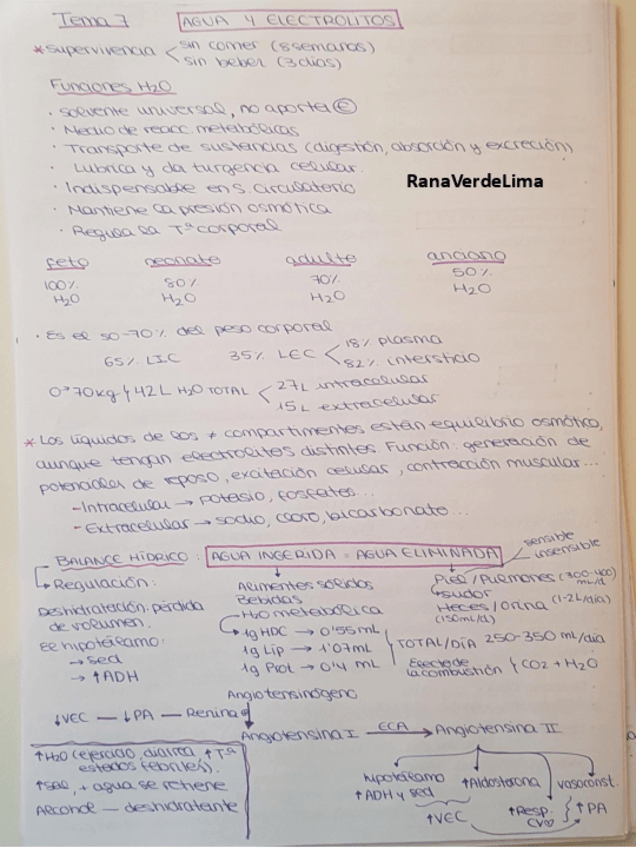 Tema 7 AGUA Y ELECTROLITOS
* Supervivencia < sin comer (8 semanas)
sin beber (3 días)
Funciones H2O
· Solvente universal, no aporta Ⓔ
· Medio de reacc. metabólicas
· Transporte de sustancias (digestión, absorción y excreción)
· Lubrica y da turgencia celular.
· Indispensable en S. circulatorio
RanaVerdeLima
· Mantiene la presión osmótica
· Regula la Tª corporal
feto neonato adulto anciano
100% 80% 70% 50%
H2O H2O H2O H2O
· Es el 50-70% del peso corporal
65% LIC 35% LEC < 18% plasma
82% intersticio
70kg 42L H2O TOTAL < 27L intracelular
15L extracelular
* Los líquidos de los ≠ compartimentes están equilibrio osmótico,
aunque tengan electrolitos distintos. Función: generación de
potenciales de reposo, excitación celular, contracción muscular...
- Intracelular → potasio, fosfatos...
- Extracelular → sodio, cloro, bicarbonato...
BALANCE HÍDRICO: AGUA INGERIDA = AGUA ELIMINADA
sensible
insensible
Regulación:
Deshidratación: pérdida
de volumen.
EE hipotálamo:
→ sed
→ ↑ADH
Alimentos sólidos
Bebidas
H2O metabólica
1g HDC → 0'55mL
1g Lip → 1'07mL
1g Prot → 0'4 mL
TOTAL/DÍA 250-350 mL/día
Efecto de
la combustión CO2 + H2O
Piel / Pulmones (300-400
mL/d
sudor
Heces / Orina (1-2L/día)
(150mL/d)
Angiotensinógeno
↓VEC — ↓PA — Renina
Angiotensina I ECA → Angiotensina II
↑H2O (ejercicio, diarrea ↑Tª
estados febriles).
↑sal, + agua se retiene
Alcohol — deshidratante
hipotálamo ↑Aldosterona vasoconst.
↑ADH y sed
↑VEC ↑Resp. ↑PA
CV